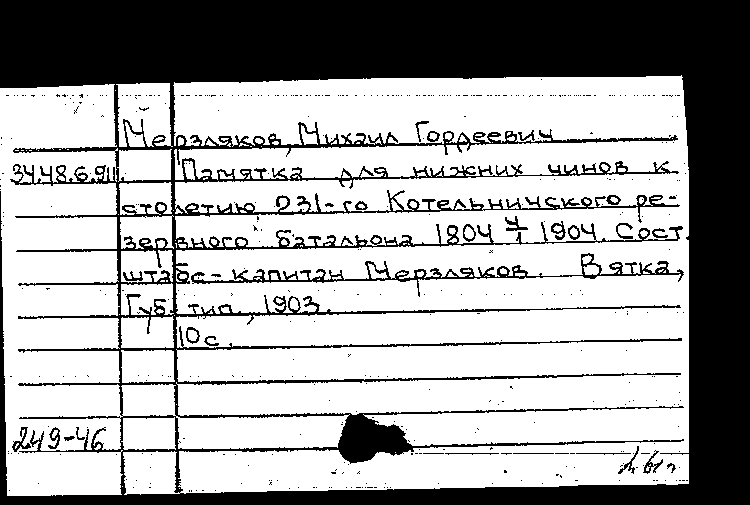 Мерзляков, Михаил Гордеевич
34.48.6.911. Памятка для нижних чинов к
столетию 231-го Котельничского ре-
зервного батальона 1804 4/I 1904. Сост.
штабс-капитан Мерзляков. Вятка,
Губ. тип., 1903.
10 с.
249-46